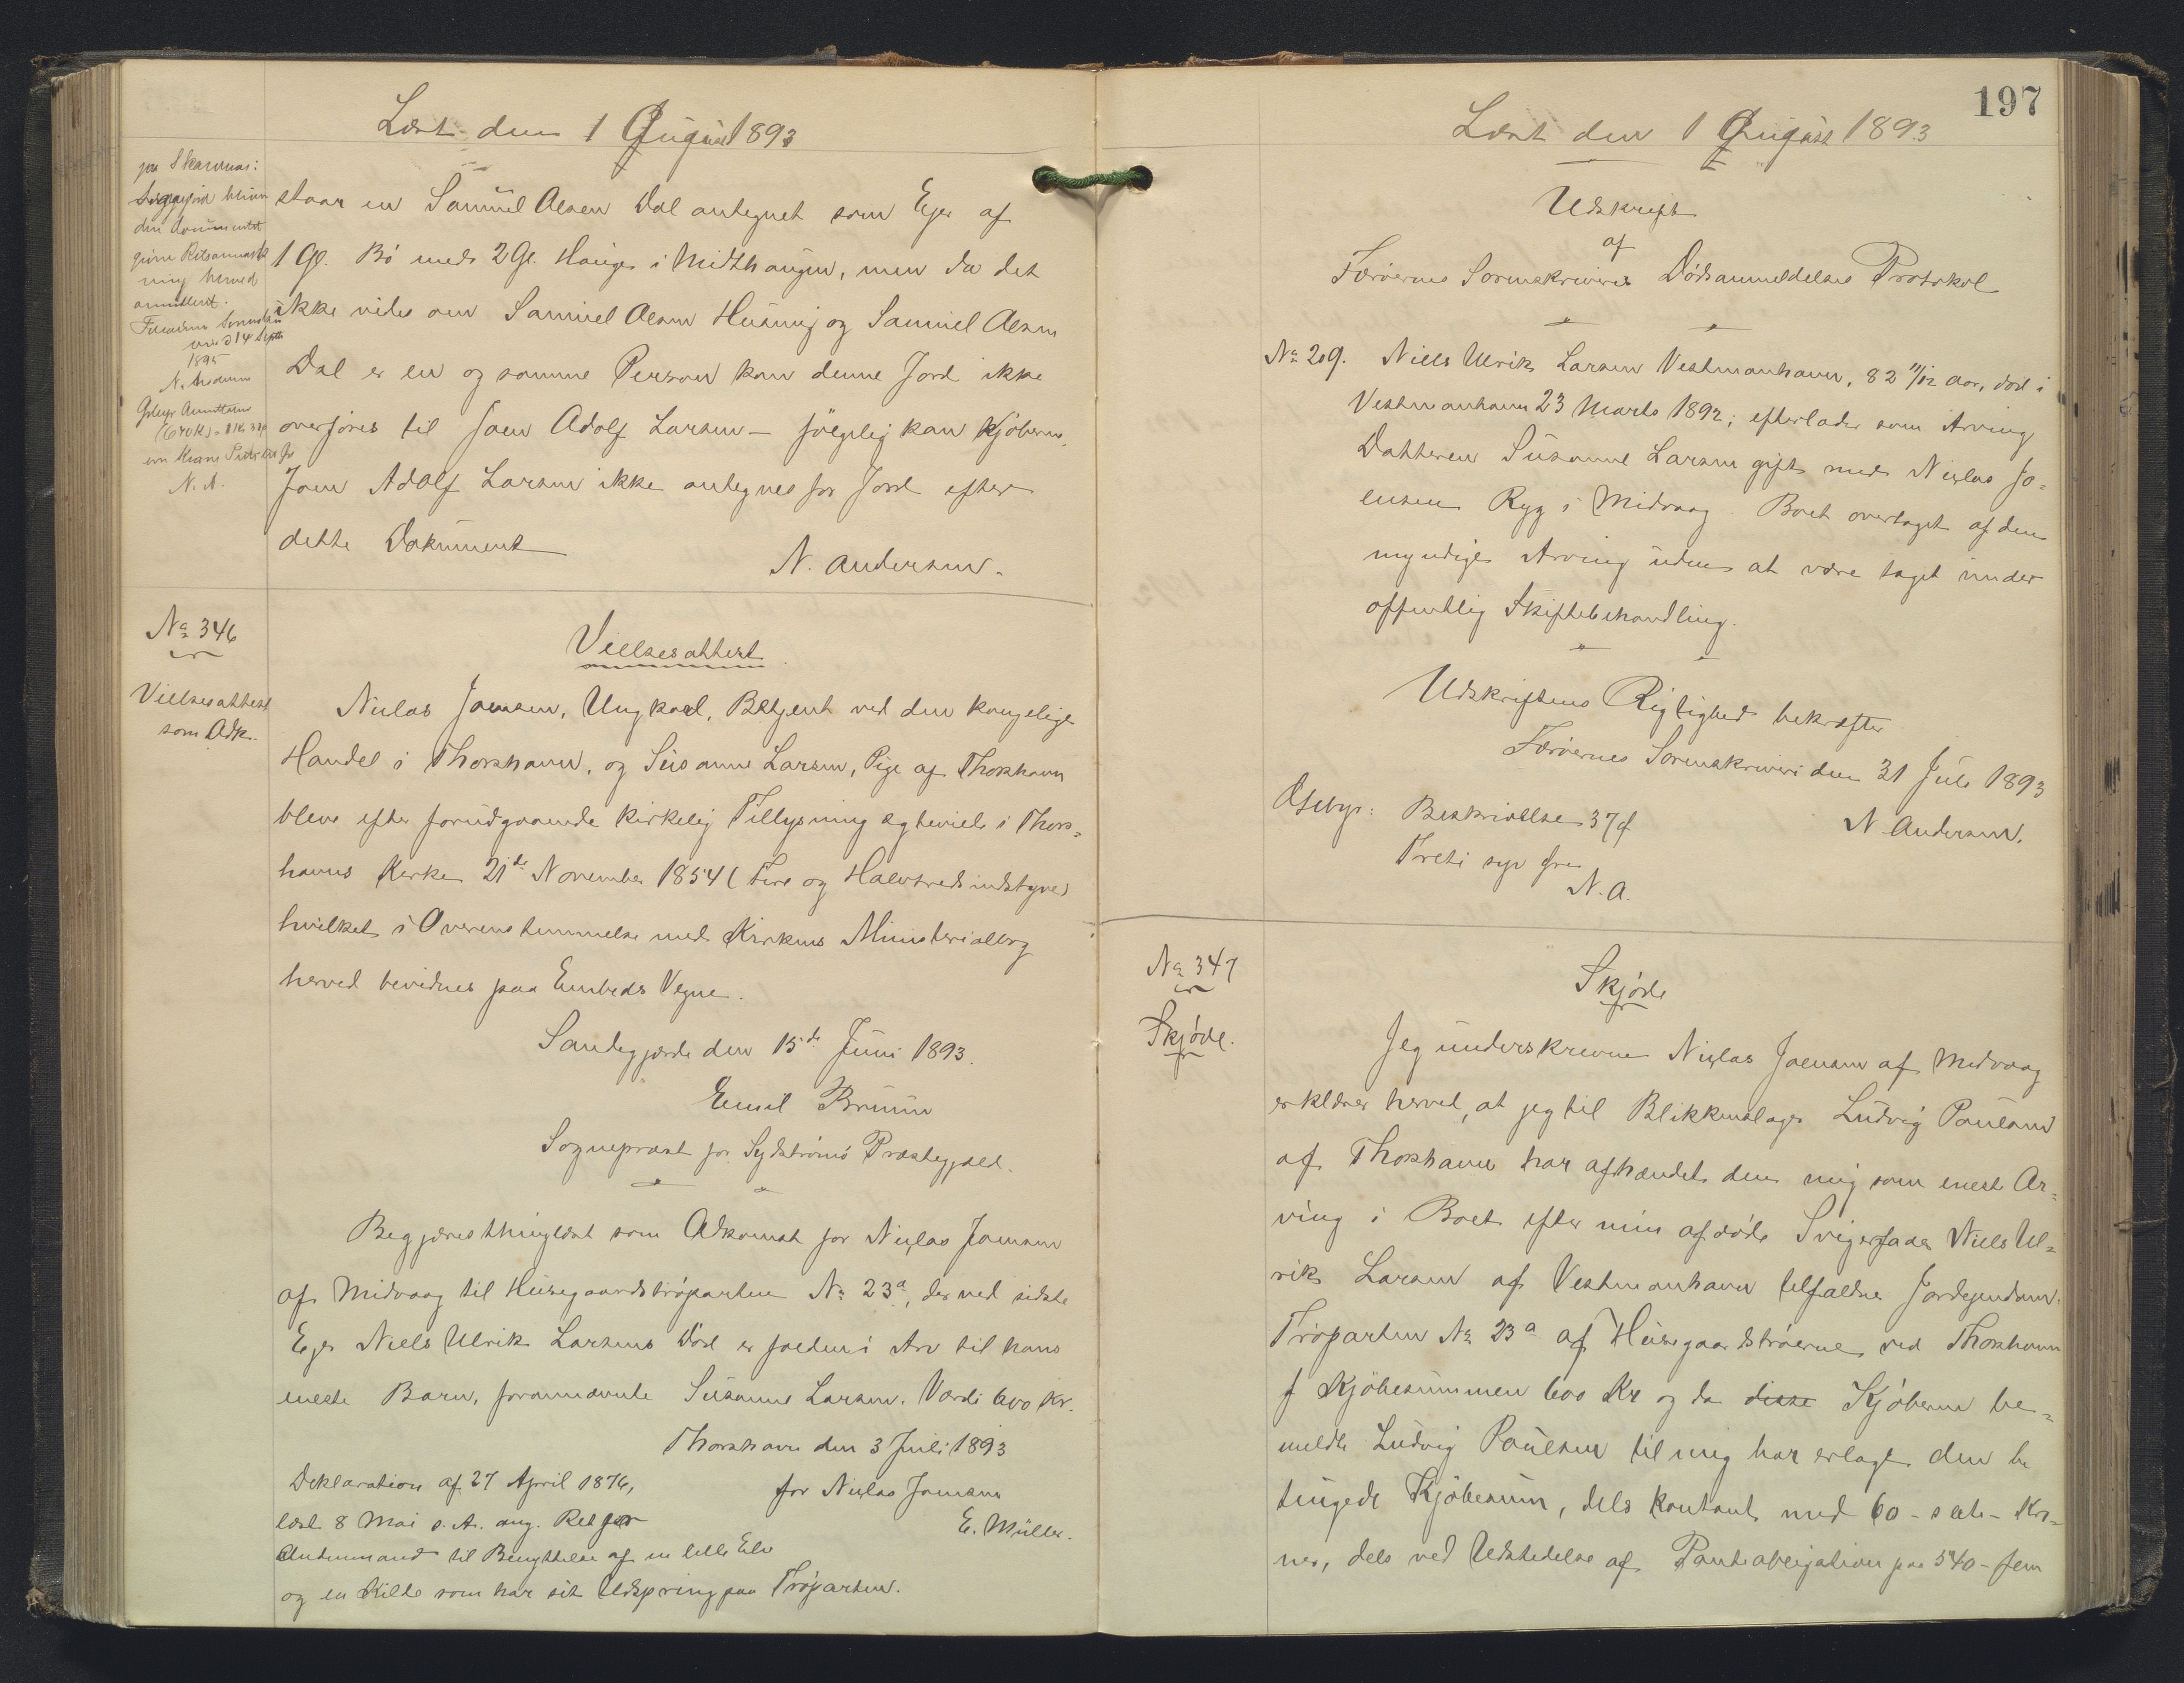 Læst den 1 August 1893
paa Skaawnas:
Læggejord bliver
dette Dokument
givne Retsanmærk
ning herved
annulleret.
Færøernes Sorenskri
veri d 14 Septb
1895
N. Andersen
N. A.
staar en Samuel Olesen Dal antegnet som Ejer af
1 Gl. Bø med 2 Gl. Hauge i Midthaugen, men da det
ikke vides om Samuel Olesen Husmig og Samuel Olesen
Dal er en og samme Person kan denne Jord ikke
overføres til Joen Adolf Larsen – følgelig kan Kjøberen,
Joen Adolf Larsen ikke antegnes for Jord efter
dette Dokument
N. Andersen.
No 346
Vielsesattest
som Adk.
Vielsesattest
Niclas Joensen, Ungkarl, Betjent ved den kongelige
Handel i Thorshavn, og Susanne Larsen, Pige af Thorshavn
bleve efter forudgaaende kirkelig Tillysning ægteviede i Thors=
havns Kirke 21de November 1854 (Fire og Halvtredsindstyve)
hvilket i Overensstemmelse med Kirkens Ministerialbog
herved bevidnes paa Embeds Vegne.
Sandegjærde den 15de Juni 1893.
Emil Bruun
Sognepræst for Sydstrømø Præstegjæld.
Begjæres thinglæst som Adkomst for Niclas Joensen
af Midvaag til Husegaardstrøparten No 23a, der ved sidste
Ejer Niels Ulrik Larsens Død er falden i Arv til hans
eneste Barn, forannævnte Susanne Larsen. Værdi 600 Kr.
Thorshavn den 3 Juli 1893
for Niclas Joensen
E. Müller.
Deklaration af 27 April 1876,
læst 8 Mai s. A. ang. Ret for
Andenmand til Benyttelse af en lille Elv
og en Kilde som har sit Udspring paa Trøparten.
197
Læst den 1 August 1893
Udskrift
af
Færøernes Sorenskriveris Dødsanmeldelses Protokol
No 209. Niels Ulrik Larsen Vestmanhavn, 82 11/12 aar, død i
Vestmanhavn 23 Marts 1892; efterlader som Arving
Datteren Susanne Larsen gift med Niclas Jo=
ensen Ryg i Midvaag. Boet overtaget af den
myndige Arving uden at være taget under
offentlig Skiftebehandling.
Udskriftens Rigtighed bekræfter
Færøernes Sorenskriveri den 31 Juli 1893
N. Andersen.
Gebyr: Beskrivelse 37 ø
Treti syv Øre
N. A.
No 347
Skjøde.
Skjøde
Jeg underskrevne Niclas Joensen af Midvaag
erklærer herved, at jeg til Blikkenslager Ludvig Poulsen
af Thorshavn har afhændet den mig som eneste Ar=
ving i Boet efter min afdøde Svigerfader Niels Ul=
rik Larsen af Vestmanhavn tilfaldne Jordejendom:
Trøparten No 23a af Husegaardstrøerne ved Thorshavn
f Kjøbesummen 600 Kr og da disse Kjøberen be=
meldte Ludvig Poulsen til mig har erlagt den be
tingede Kjøbesum, dels kontant med 60 – seti – Kro=
ner, dels ved Udstedelse af Panteobligation paa 540 – fem